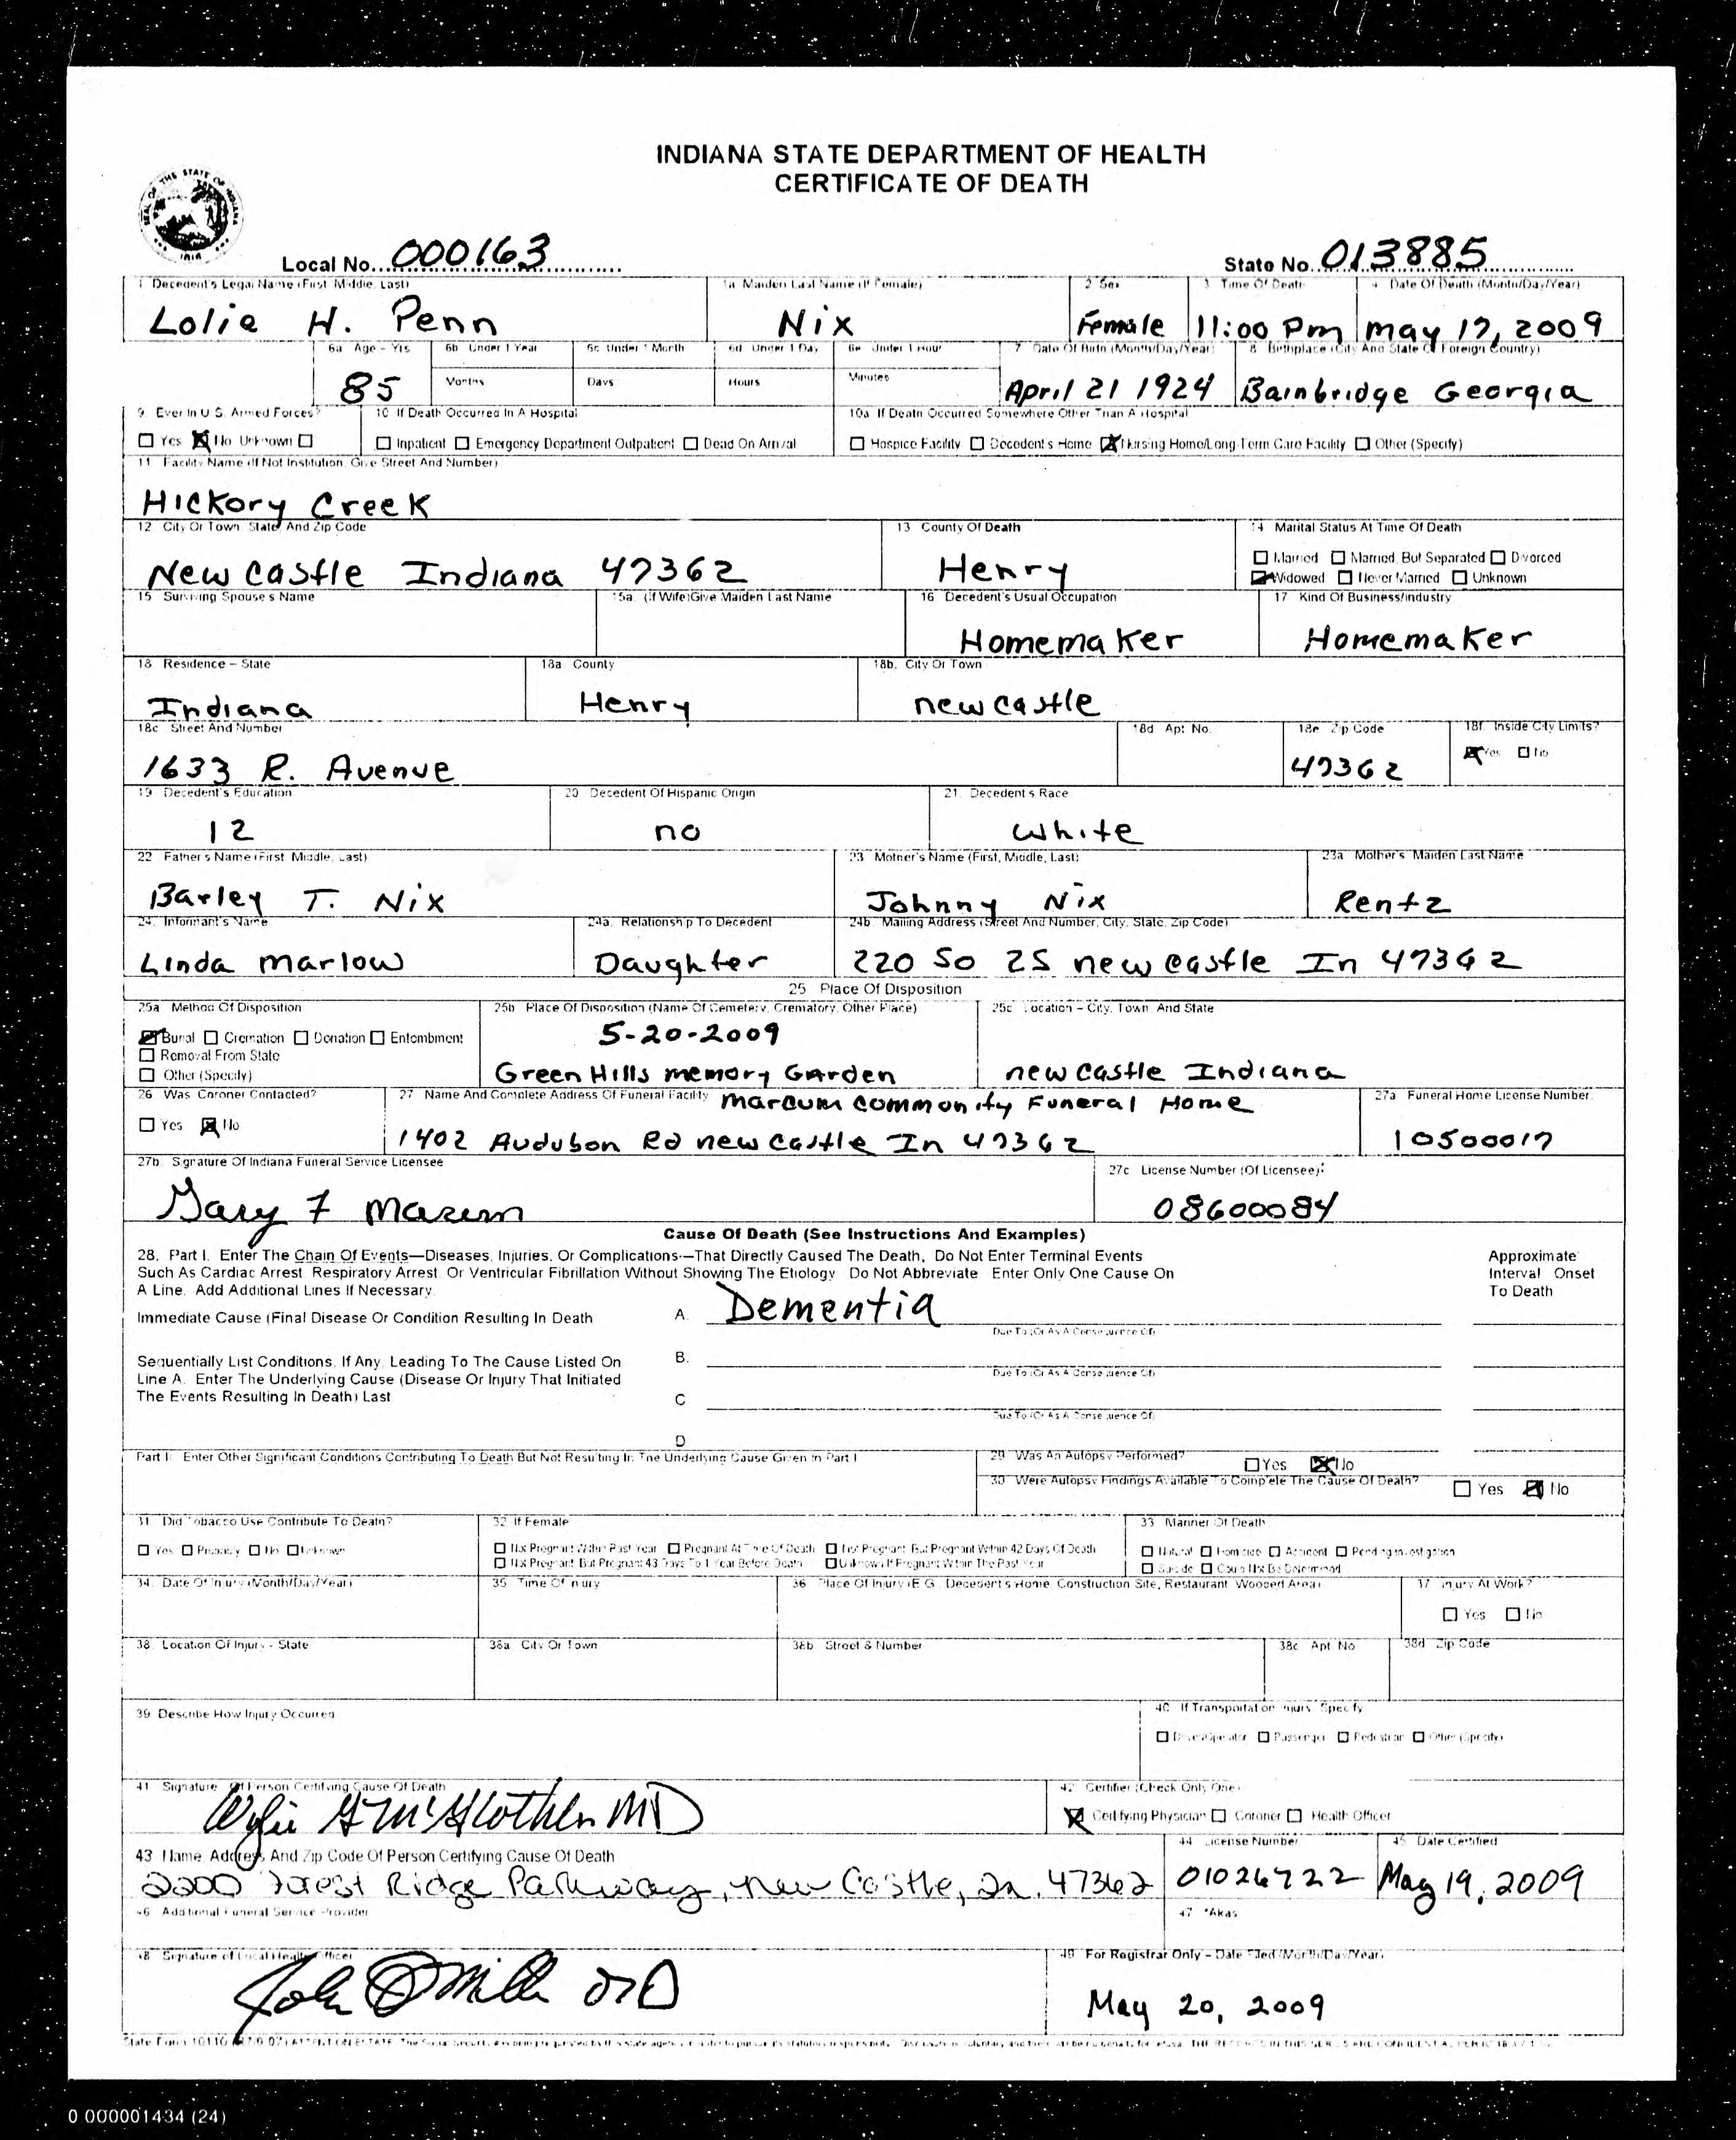 INDIANA STATE DEPARTMENT OF HEALTH
CERTIFICATE OF DEATH
SEAL OF THE STATE OF INDIANA
1816
Local No. 000163
State No. 013885
1 Decedent's Legal Name (First, Middle, Last) 1a Maiden Last Name (If Female) 2 Sex 3 Time Of Death 4 Date Of Death (Month/Day/Year)
Lolie H. Penn Nix Female 11:00 Pm may 17, 2009
6a Age - Yrs 6b Under 1 Year 6c Under 1 Month 6d Under 1 Day 6e Under 1 Hour 7 Date Of Birth (Month/Day/Year) 8 Birthplace (City And State Or Foreign Country)
85 Months Days Hours Minutes April 21 1924 Bainbridge Georgia
9. Ever In U S Armed Forces? 10 If Death Occurred In A Hospital 10a If Death Occurred Somewhere Other Than A Hospital
Yes No Unknown Inpatient Emergency Department Outpatient Dead On Arrival Hospice Facility Decedent's Home Nursing Home/Long-Term Care Facility Other (Specify)
11 Facility Name (If Not Institution, Give Street And Number)
Hickory Creek
12 City Or Town State And Zip Code 13 County Of Death 14 Marital Status At Time Of Death
New castle Indiana 47362 Henry
Married Married But Separated Divorced
Widowed Never Married Unknown
15 Surviving Spouse's Name 15a (If Wife) Give Maiden Last Name 16 Decedent's Usual Occupation 17 Kind Of Business/Industry
Homemaker Homemaker
18 Residence – State 18a County 18b. City Or Town
Indiana Henry new castle
18c Street And Number 18d Apt No. 18e Zip Code 18f Inside City Limits?
1633 R. Avenue 47362 Yes No
19 Decedent's Education 20 Decedent Of Hispanic Origin 21. Decedent's Race
12 no white
22 Father's Name (First, Middle, Last) 23 Mother's Name (First, Middle, Last) 23a Mother's Maiden Last Name
Barley T. Nix Johnny Nix Rentz
24. Informant's Name 24a. Relationship To Decedent 24b. Mailing Address (Street And Number, City, State, Zip Code)
Linda marlow Daughter 220 So 25 new castle In 47362
25 Place Of Disposition
25a Method Of Disposition 25b Place Of Disposition (Name Of Cemetery, Crematory, Other Place) 25c Location – City, Town And State
Burial Cremation Donation Entombment
Removal From State
Other (Specify)
5-20-2009
Green Hills memory Garden new castle Indiana
26 Was Coroner Contacted? 27 Name And Complete Address Of Funeral Facility 27a Funeral Home License Number
Yes No marcum community Funeral Home
1402 Audubon Rd new castle In 47362 10500017
27b. Signature Of Indiana Funeral Service Licensee 27c License Number (Of Licensee):
Gary F Marcum 08600084
Cause Of Death (See Instructions And Examples)
28. Part I. Enter The Chain Of Events—Diseases, Injuries, Or Complications—That Directly Caused The Death, Do Not Enter Terminal Events
Such As Cardiac Arrest Respiratory Arrest Or Ventricular Fibrillation Without Showing The Etiology Do Not Abbreviate Enter Only One Cause On
A Line. Add Additional Lines If Necessary.
Approximate
Interval Onset
To Death
Immediate Cause (Final Disease Or Condition Resulting In Death A. Dementia
Due To (Or As A Consequence Of)
Sequentially List Conditions, If Any, Leading To The Cause Listed On B.
Line A. Enter The Underlying Cause (Disease Or Injury That Initiated Due To (Or As A Consequence Of)
The Events Resulting In Death) Last C
Due To (Or As A Consequence Of)
D
Part II Enter Other Significant Conditions Contributing To Death But Not Resulting In The Underlying Cause Given In Part I
29 Was An Autopsy Performed? Yes No
30 Were Autopsy Findings Available To Complete The Cause Of Death? Yes No
31 Did Tobacco Use Contribute To Death? 32 If Female 33 Manner Of Death
Yes Probably No Unknown
Not Pregnant Within Past Year Pregnant At Time Of Death Not Pregnant But Pregnant Within 42 Days Of Death
Not Pregnant But Pregnant 43 Days To 1 Year Before Death Unknown If Pregnant Within The Past Year
Natural Homicide Accident Pending Investigation
Suicide Could Not Be Determined
34. Date Of Injury (Month/Day/Year) 35 Time Of Injury 36 Place Of Injury (E G , Decedent's Home, Construction Site, Restaurant, Wooded Area) 37 Injury At Work?
Yes No
38 Location Of Injury - State 38a City Or Town 38b Street & Number 38c Apt No 38d Zip Code
39 Describe How Injury Occurred 40 If Transportation Injury Specify
Driver/Operator Passenger Pedestrian Other (Specify)
41 Signature Of Person Certifying Cause Of Death 42 Certifier (Check Only One)
Wylie G McGlothlin MD
Certifying Physician Coroner Health Officer
43 Name, Address And Zip Code Of Person Certifying Cause Of Death 44 License Number 45 Date Certified
2200 Forest Ridge Parkway, New Castle, In. 47362 01026722 May 19, 2009
46 Additional Funeral Service Provider 47 *Akas
48 Signature of Local Health Officer 49 For Registrar Only – Date Filed (Month/Day/Year)
John MD
May 20, 2009
State Form 10110
0 000001434 (24)